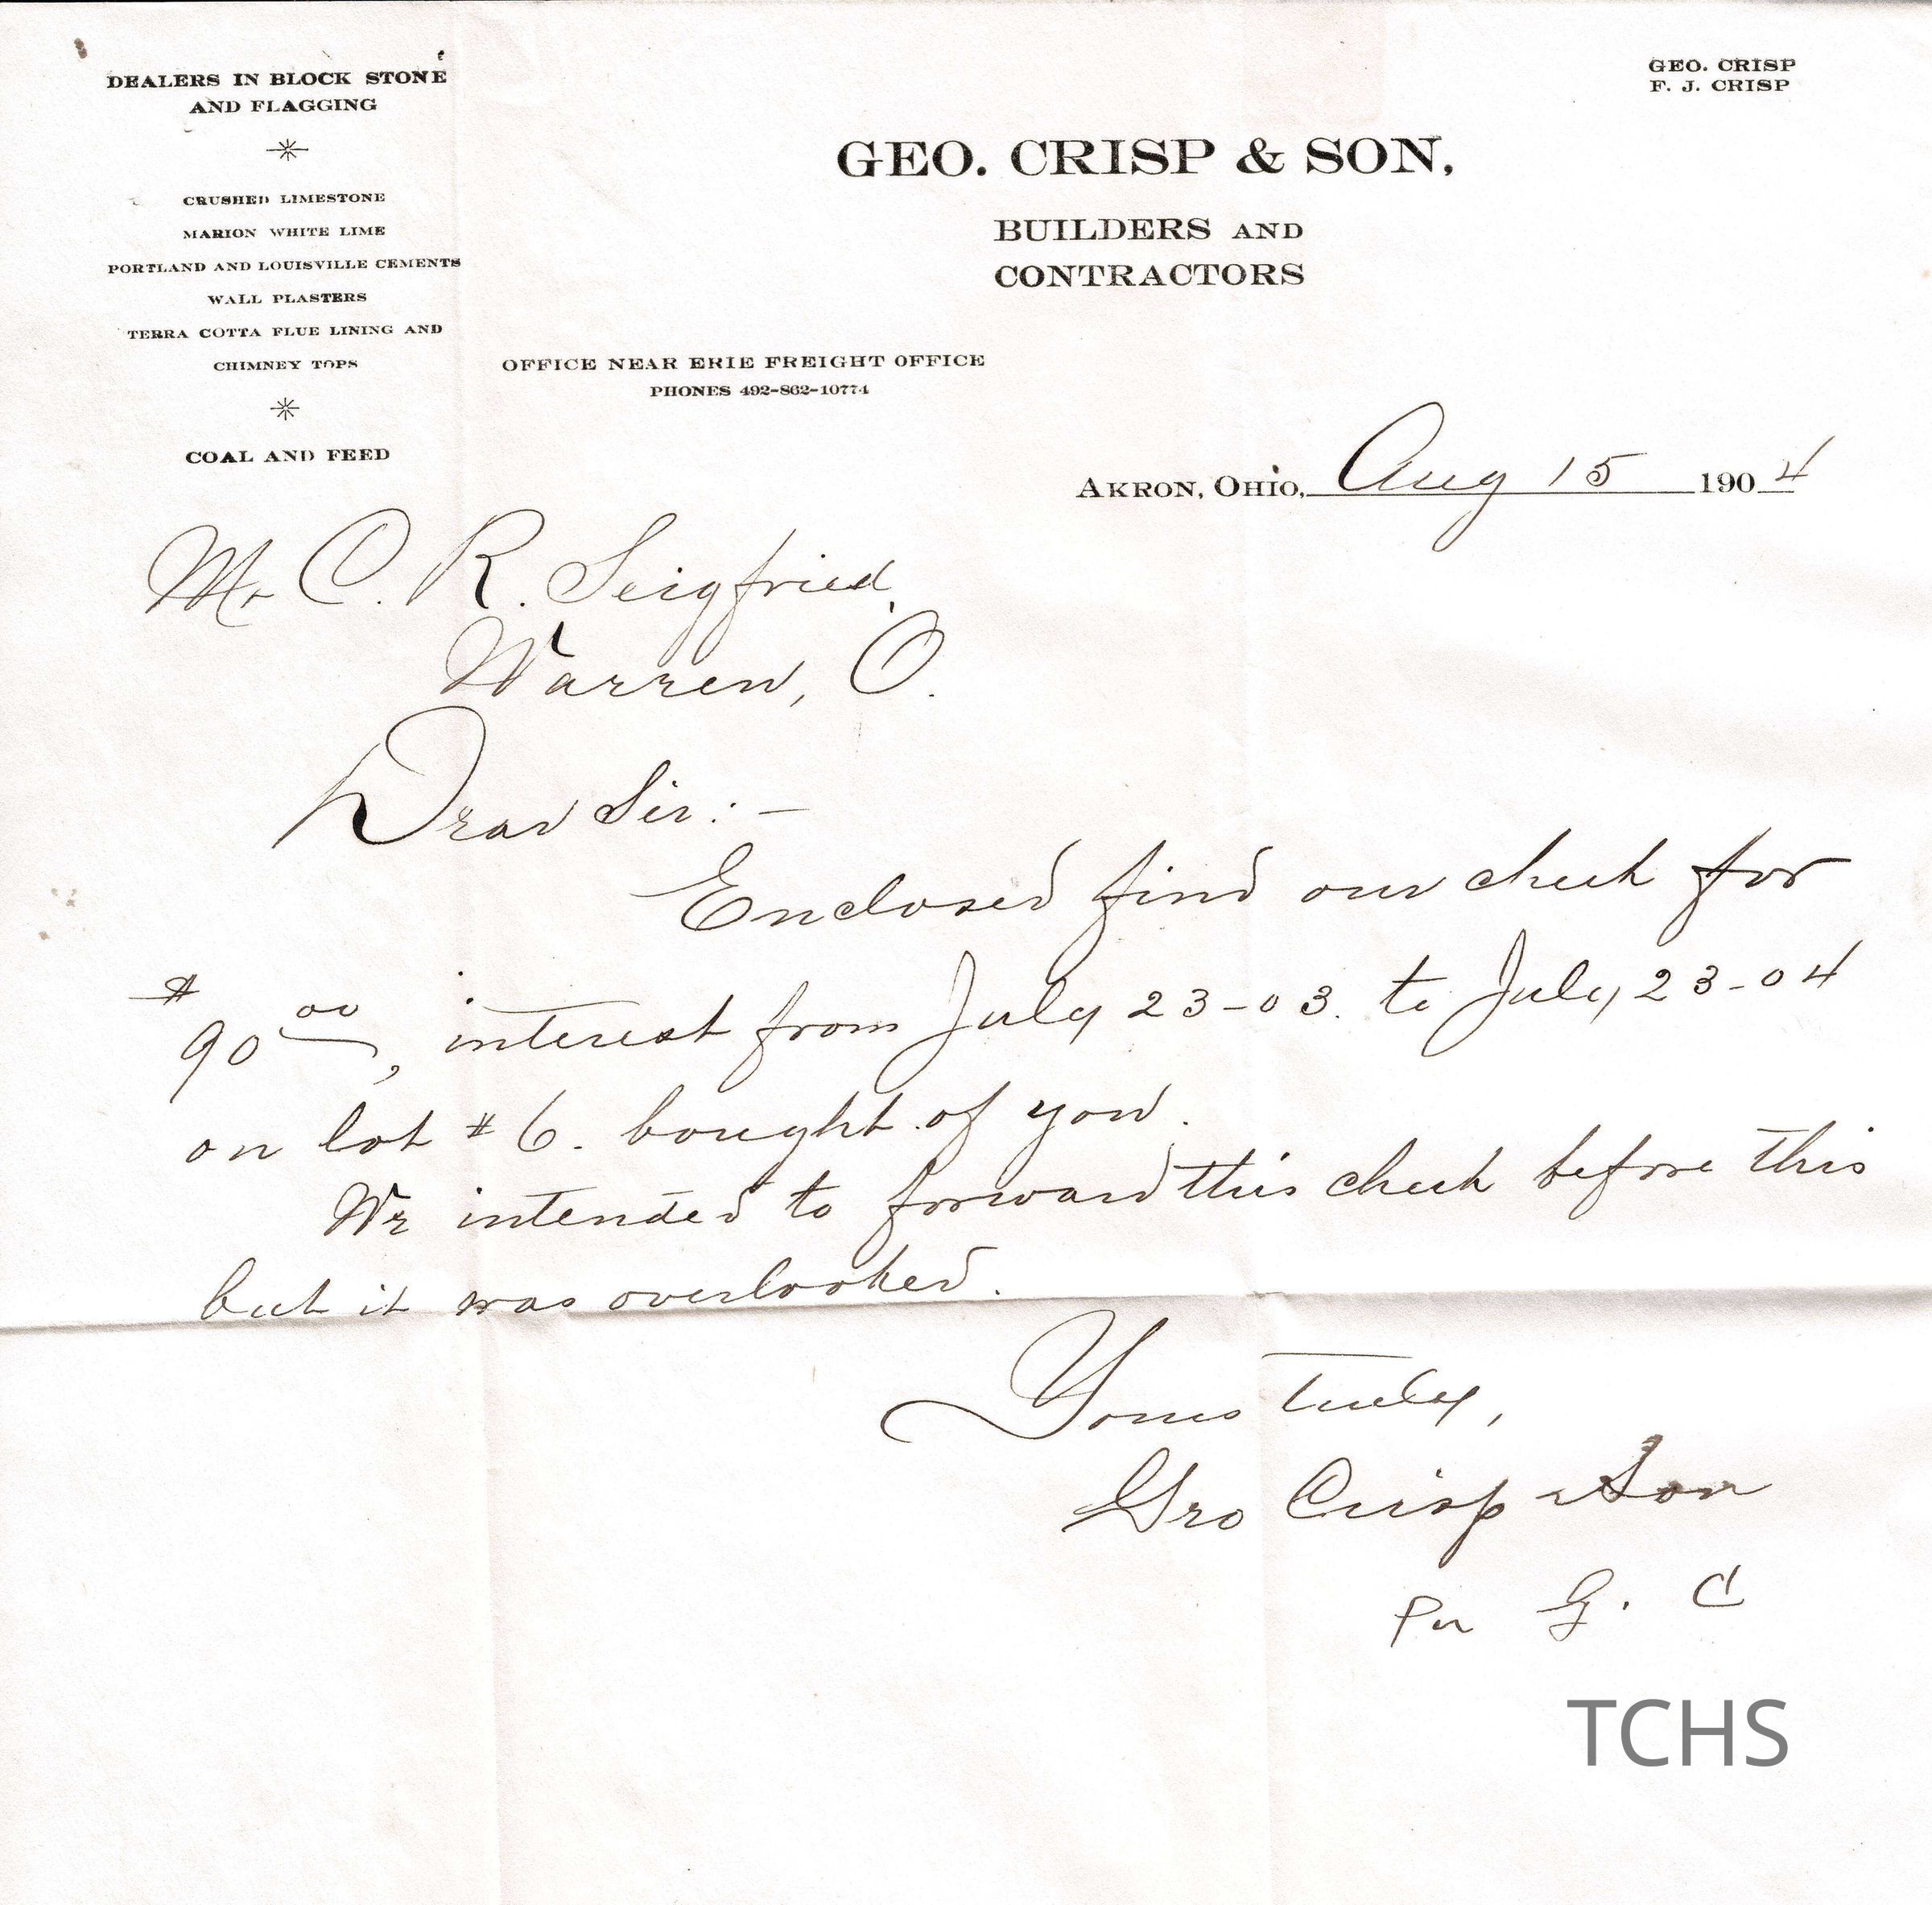 DEALERS IN BLOCK STONE
AND FLAGGING
CRUSHED LIMESTONE
MARION WHITE LIME
PORTLAND AND LOUISVILLE CEMENTS
WALL PLASTERS
TERRA COTTA FLUE LINING AND
CHIMNEY TOPS
COAL AND FEED
GEO. CRISP
F. J. CRISP
GEO. CRISP & SON,
BUILDERS AND
CONTRACTORS
OFFICE NEAR ERIE FREIGHT OFFICE
PHONES 492-862-10774
AKRON, OHIO, Aug 15 1904
Mr C. R. Seigfried,
Warren, O.
Dear Sir:-
Enclosed find our check for
$90 00, interest from July 23-03. to July 23-04
on lot #6. bought of you.
We intended to forward this check before this
but it was overlooked.
Yours truly,
Geo Crisp & Son
Per G. C
TCHS